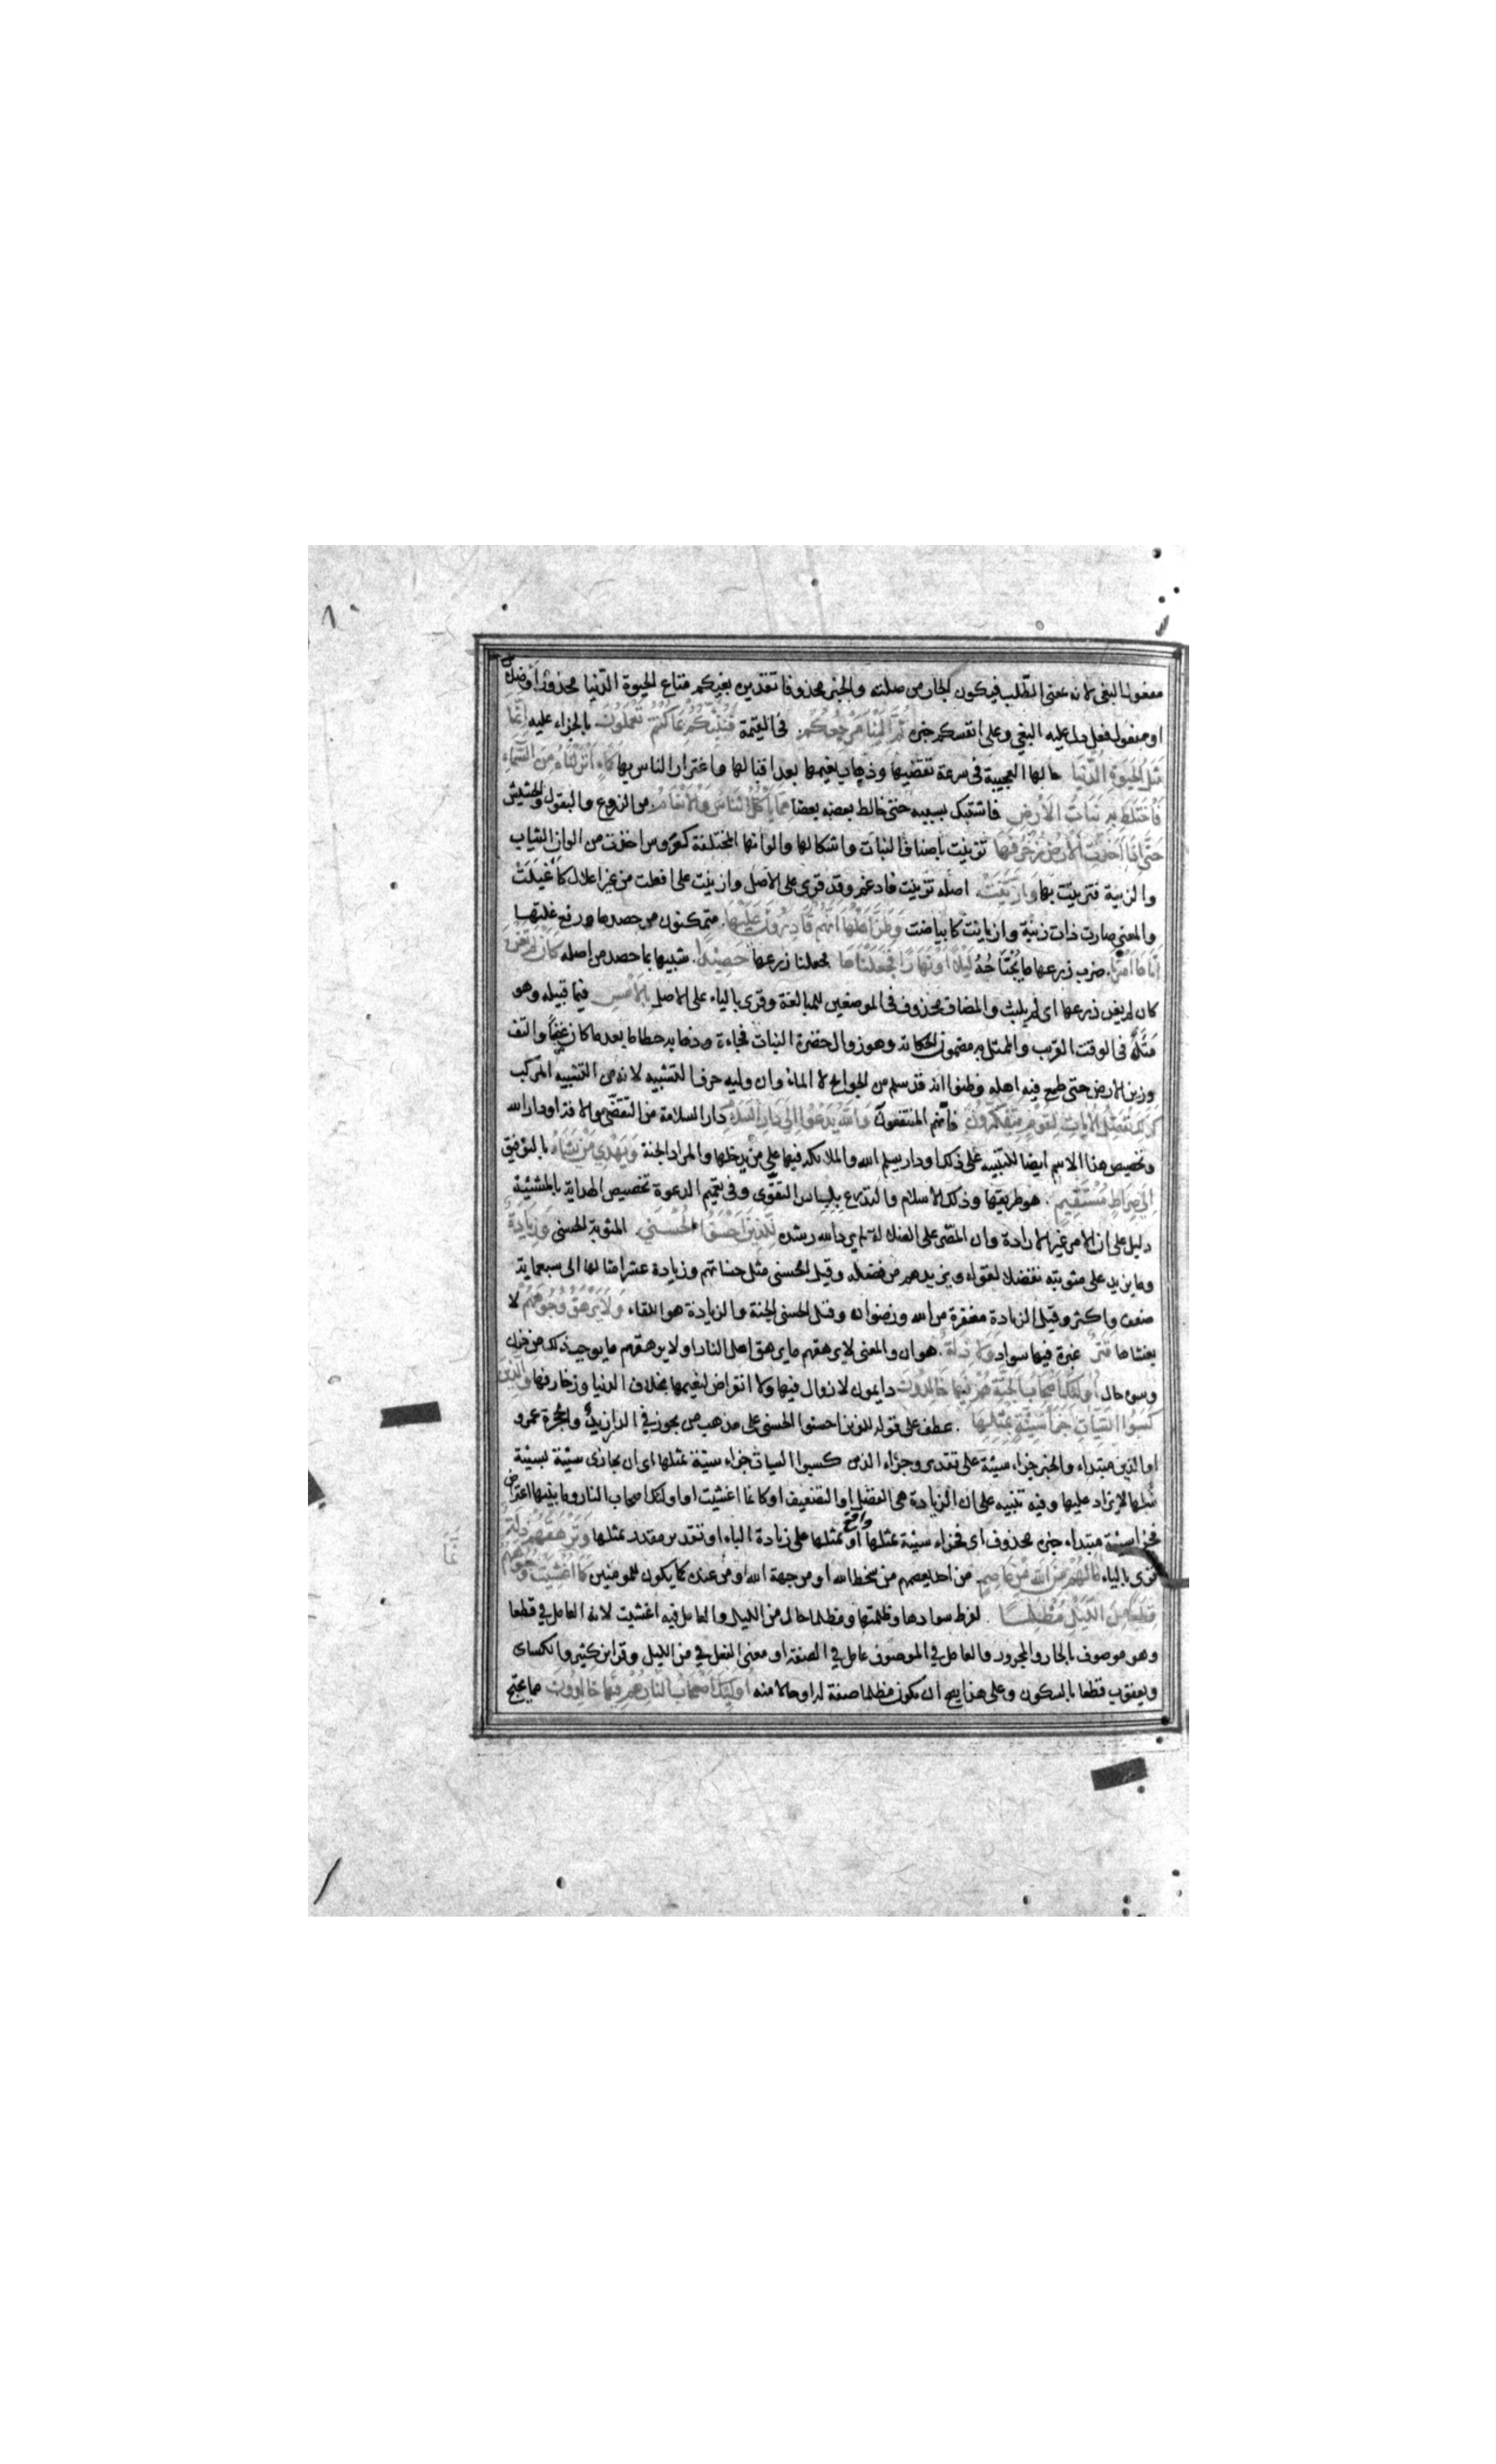 مفعول البغى لانه بمعنى الطلب فيكون الجار من صلته والخبر محذوفا تقديره بغيكم متاع الحيوة الدنيا محذور او ضلال
او مفعول فعل دل عليه البغى وعلى انفسكم خبره ثُمَّ اِلَيْنَا مَرْجِعُكُمْ في القيمة فَنُنَبِّئُكُمْ بِمَا كُنْتُمْ تَعْمَلُونَ بالجزاء عليه اِنَّمَا
مَثَلُ الْحَيٰوةِ الدُّنْيَا حالها العجيبة فى سرعة تقضيها وذهاب نعيمها بعد اقبالها واغترار الناس بها كَمَاءٍ اَنْزَلْنَاهُ مِنَ السَّمَاءِ
فَاخْتَلَطَ بِهِ نَبَاتُ الْاَرْضِ فاشتبك بسببه حتى خالط بعضه بعضا مِمَّا يَأْكُلُ النَّاسُ وَالْاَنْعَامُ من الزروع والبقول والحشيش
حَتَّى اِذَا اَخَذَتِ الْاَرْضُ زُخْرُفَهَا تزينت باصناف النبات واشكالها والوانها المختلفة كعروس اخذت من الوان الثياب
والزينة فتزينت بها وَازَّيَّنَتْ اصله تزينت فادغم وقد قرى على الاصل وازينت على افعلت من غير اعلال كاغيلت
والمعنى صارت ذات زينة وازيانت كابياضت وَظَنَّ اَهْلُهَا اَنَّهُمْ قَادِرُونَ عَلَيْهَا متمكنون من حصدها ورفع غلتها
اَتَاهَا اَمْرُنَا ضرب زرعها ما يجتاحه لَيْلًا اَوْ نَهَارًا فَجَعَلْنَاهَا فجعلنا زرعها حَصِيدًا شبيها بما حصد من اصله كَاَنْ لَمْ تَغْنَ
كان لم يغن زرعها اى لم يلبث والمضاف محذوف فى الموضعين للمبالغة وقرى بالياء على الاصل بِالْاَمْسِ فيما قبيله وهو
مثل فى الوقت القريب والممثل به مضمون الحكاية وهو زوال خضرة النبات فجاءة وذهابه حطاما بعد ما كان غضا والتف
وزين الارض حتى طمع فيه اهله وظنوا انه قد سلم من الجوايح لا الماء وان وليه حرف التشبيه لانه من التشبيه المركب
كَذٰلِكَ نُفَصِّلُ الْاٰيَاتِ لِقَوْمٍ يَتَفَكَّرُونَ فانهم المنتفعون وَاللّٰهُ يَدْعُوا اِلَى دَارِ السَّلَامِ دار السلامة من التقضى والافة او دار الله
وتخصيص هذا الاسم ايضا للتنبيه على ذلك او دار يسلم الله والملائكة فيها على من يدخلها والمراد الجنة وَيَهْدِي مَنْ يَشَاءُ بالتوفيق
اِلَى صِرَاطٍ مُسْتَقِيمٍ هو طريقها وذلك الاسلام والتدرع بلباس التقوى وفى تعميم الدعوة تخصيص الهداية بالمشئية
دليل على ان الامر غير الارادة وان المصر على الضلالة لم يرد الله رشده لِلَّذِينَ اَحْسَنُوا الْحُسْنَى المثوبة الحسنى وَزِيَادَةٌ
وما يزيد على مثوبته تفضلا لقوله ويزيدهم من فضله وقيل الحسنى مثل حسناتهم وزيادة عشر امثالها الى سبعماية
ضعف واكثر وقيل الزيادة مغفرة من الله ورضوانه وقيل الحسنى الجنة والزيادة هو اللقاء وَلَا يَرْهَقُ وُجُوهَهُمْ لا
يغشاها قَتَرٌ غبرة فيها سواد وَلَا ذِلَّةٌ هوان والمعنى لا يرهقهم ما يرهق اهل النار او لا يرهقهم ما يوجب ذلك من حزن
وسوء حال اُولٰئِكَ اَصْحَابُ الْجَنَّةِ هُمْ فِيهَا خَالِدُونَ دايمون لا زوال فيها ولا انقراض لنعيمها بخلاف الدنيا وزخارفها وَالَّذِينَ
كَسَبُوا السَّيِّئَاتِ جَزَاءُ سَيِّئَةٍ بِمِثْلِهَا عطف على قوله للذين احسنوا الحسنى على مذهب من يجوز في الدار زيد والحجرة عمرو
او الذين مبتداء والخبر جزاء سيئة على تقدير وجزاء الذين كسبوا السيات جزاء سيئة بمثلها اى ان يجازى سيئة بسيئة
مثلها لا يزاد عليها وفيه تنبيه على ان الزيادة هى الفضل او التضعيف او كانما اغشيت او اولئك اصحاب النار وما بينهما اعتراض
فجزاء سيئة مبتداء خبره محذوف اى فجزاء سيئة بمثلها واقع او بمثلها على زيادة الباء او تقدير مقدر بمثلها وَتَرْهَقُهُمْ ذِلَّةٌ
قرى بالياء مَا لَهُمْ مِنَ اللّٰهِ مِنْ عَاصِمٍ من احد يعصمهم من سخط الله او من جهة الله او من عنده كما يكون للمومنين كَاَنَّمَا اُغْشِيَتْ وُجُوهُهُمْ
قِطَعًا مِنَ اللَّيْلِ مُظْلِمًا لفرط سوادها وظلمتها ومظلما حال من الليل والعامل فيه اغشيت لانه العامل في قطعا
وهو موصوف بالجار والمجرور والعامل في الموصوف عامل في الصفة او معنى الفعل في من الليل وقرا ابن كثير والكساى
ويعقوب قطعا بالسكون وعلى هذا يصح ان يكون مظلما صفة له او حالا منه اُولٰئِكَ اَصْحَابُ النَّارِ هُمْ فِيهَا خَالِدُونَ مما يحتج